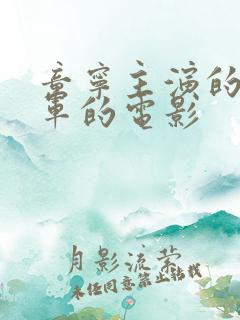 章寧主演的
軍的電影
月影流萤
未经同意禁止转载